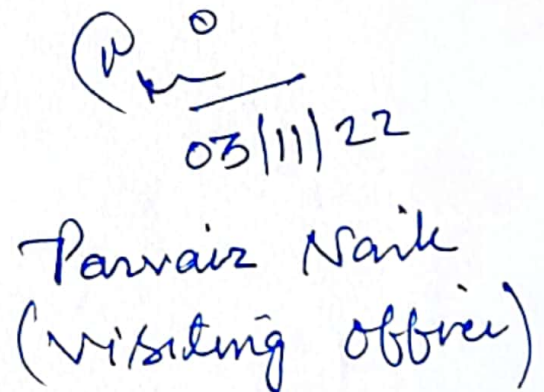 03/11/22
Parvaiz Naik
(visiting officer)